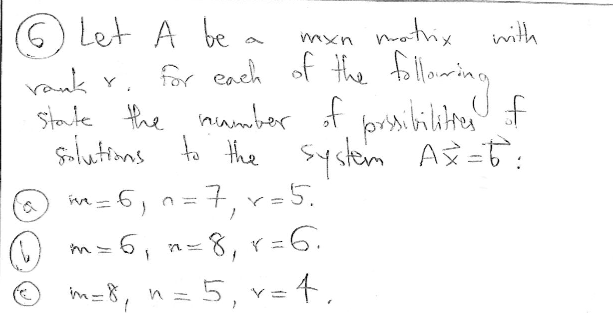 6 Let A be a mxn matrix with
rank r. For each of the following
state the number of possibilities of
solutions to the system Ax⃗ = b⃗ :
a m=6, n=7, r=5.
b m=6, n=8, r=6.
c m=8, n=5, r=4.